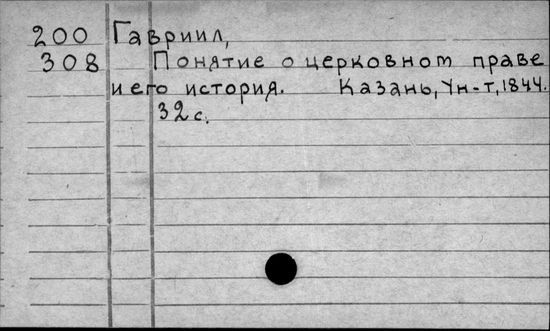 200 Гавриил,
308 Понятие о церковном праве
и его история. Казань, Ун-т, 1844.
32 с.